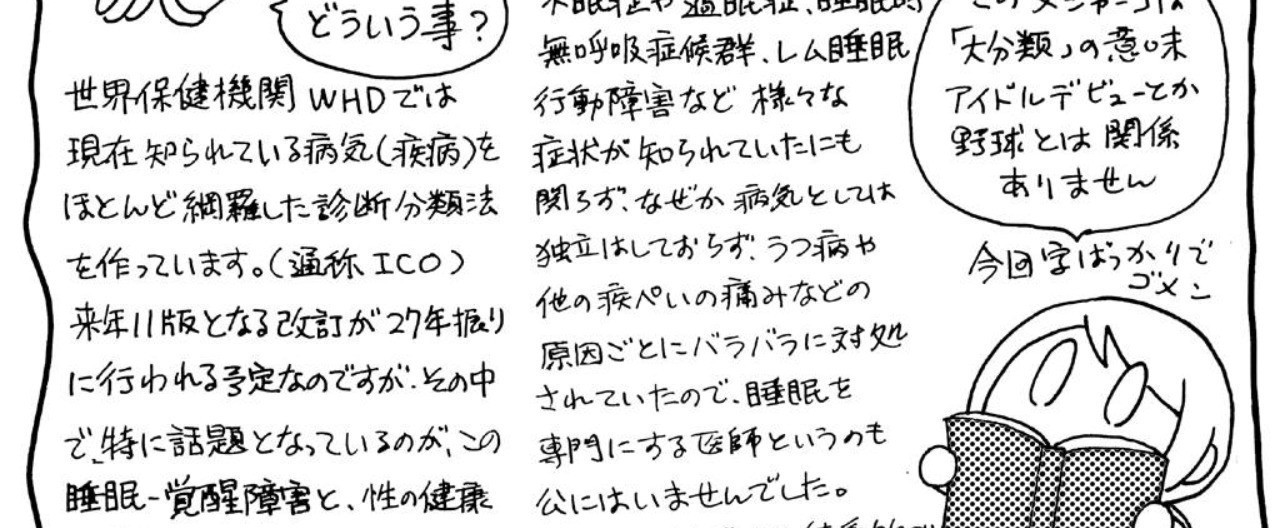 どういう事？
世界保健機関 WHOでは
現在 知られている病気(疾病)を
ほとんど網羅した診断分類法
を作っています。(通称 ICD)
来年11版となる改訂が27年振り
に行われる予定なのですが、その中
で、特に話題となっているのが、この
睡眠-覚醒障害と、性の健康
不眠症や過眠症、睡眠時
無呼吸症候群、レム睡眠
行動障害など 様々な
症状が知られていたにも
関らず、なぜか 病気としては
独立はしておらず、うつ病や
他の疾ぺいの痛みなどの
原因ごとにバラバラに対処
されていたので、睡眠を
専門にする医師というのも
公にはいませんでした。
このメジャーは
「大分類」の意味
アイドルデビューとか
野球とは関係
ありません
今回字ばっかりで
ゴメン